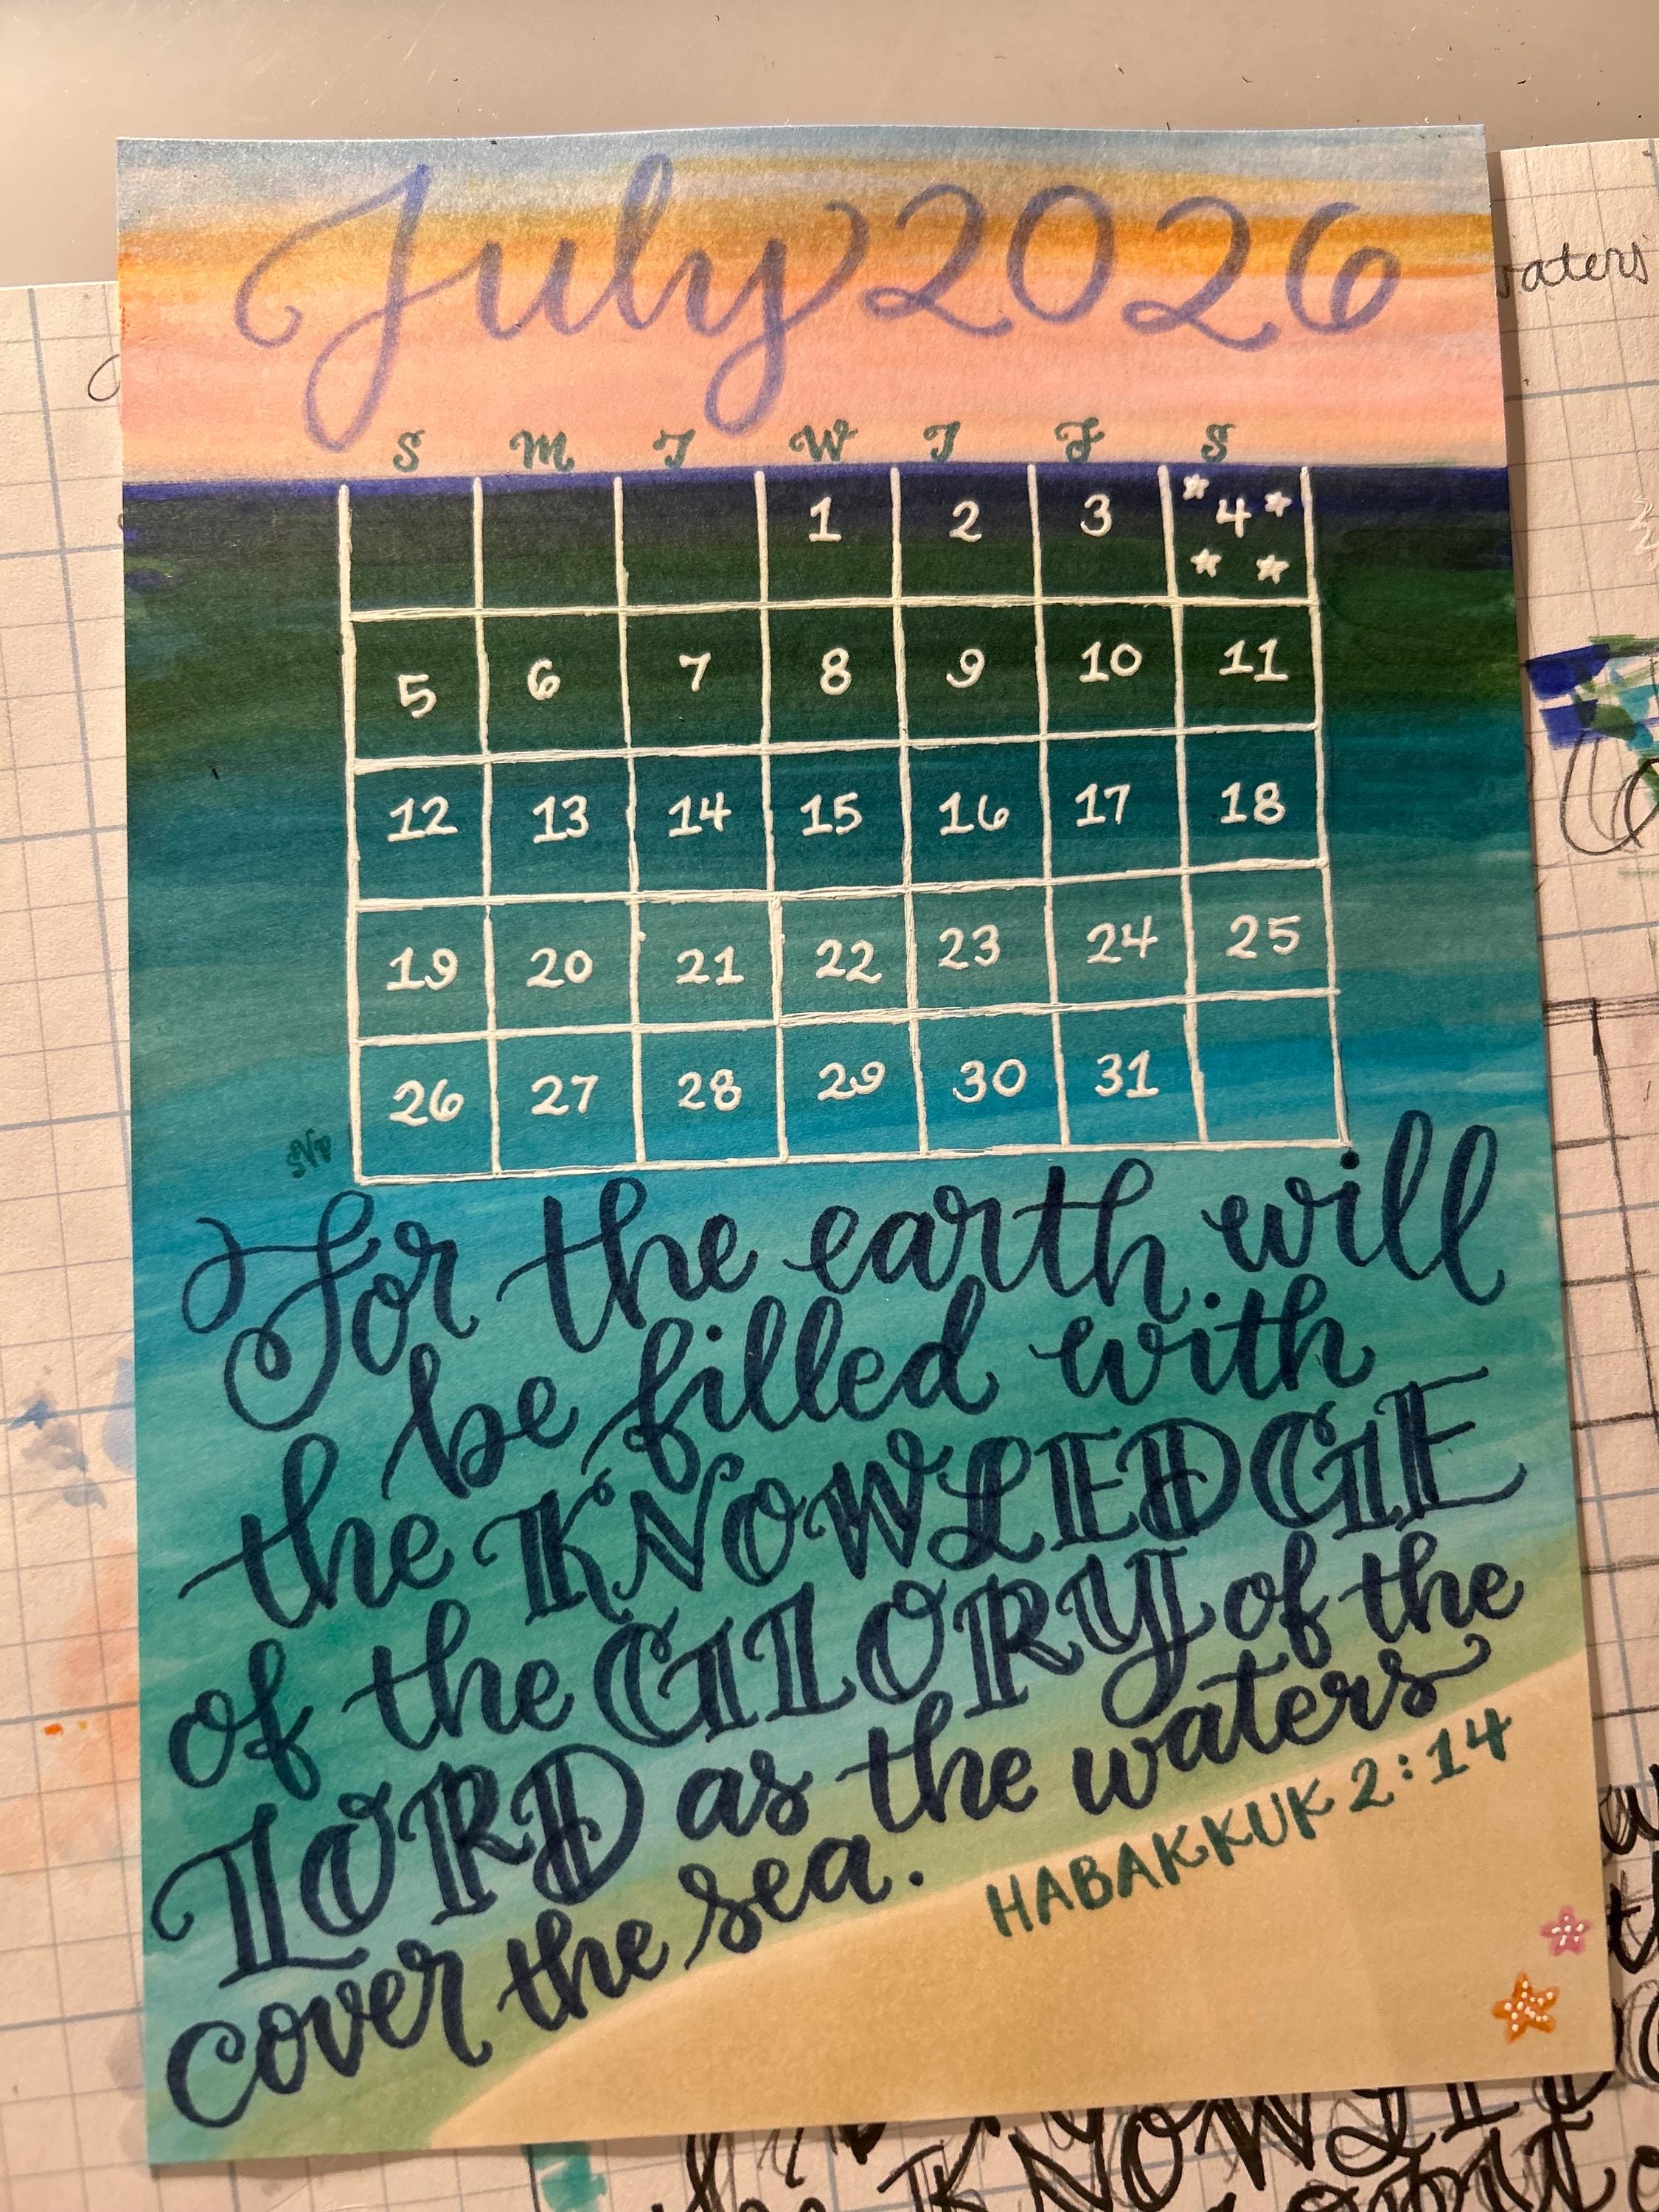 July 2026
S M T W T F S
1 2 3 4
5 6 7 8 9 10 11
12 13 14 15 16 17 18
19 20 21 22 23 24 25
26 27 28 29 30 31
For the earth will
be filled with
the KNOWLEDGE
of the GLORY of the
LORD as the waters
cover the sea.
HABAKKUK 2:14
waters